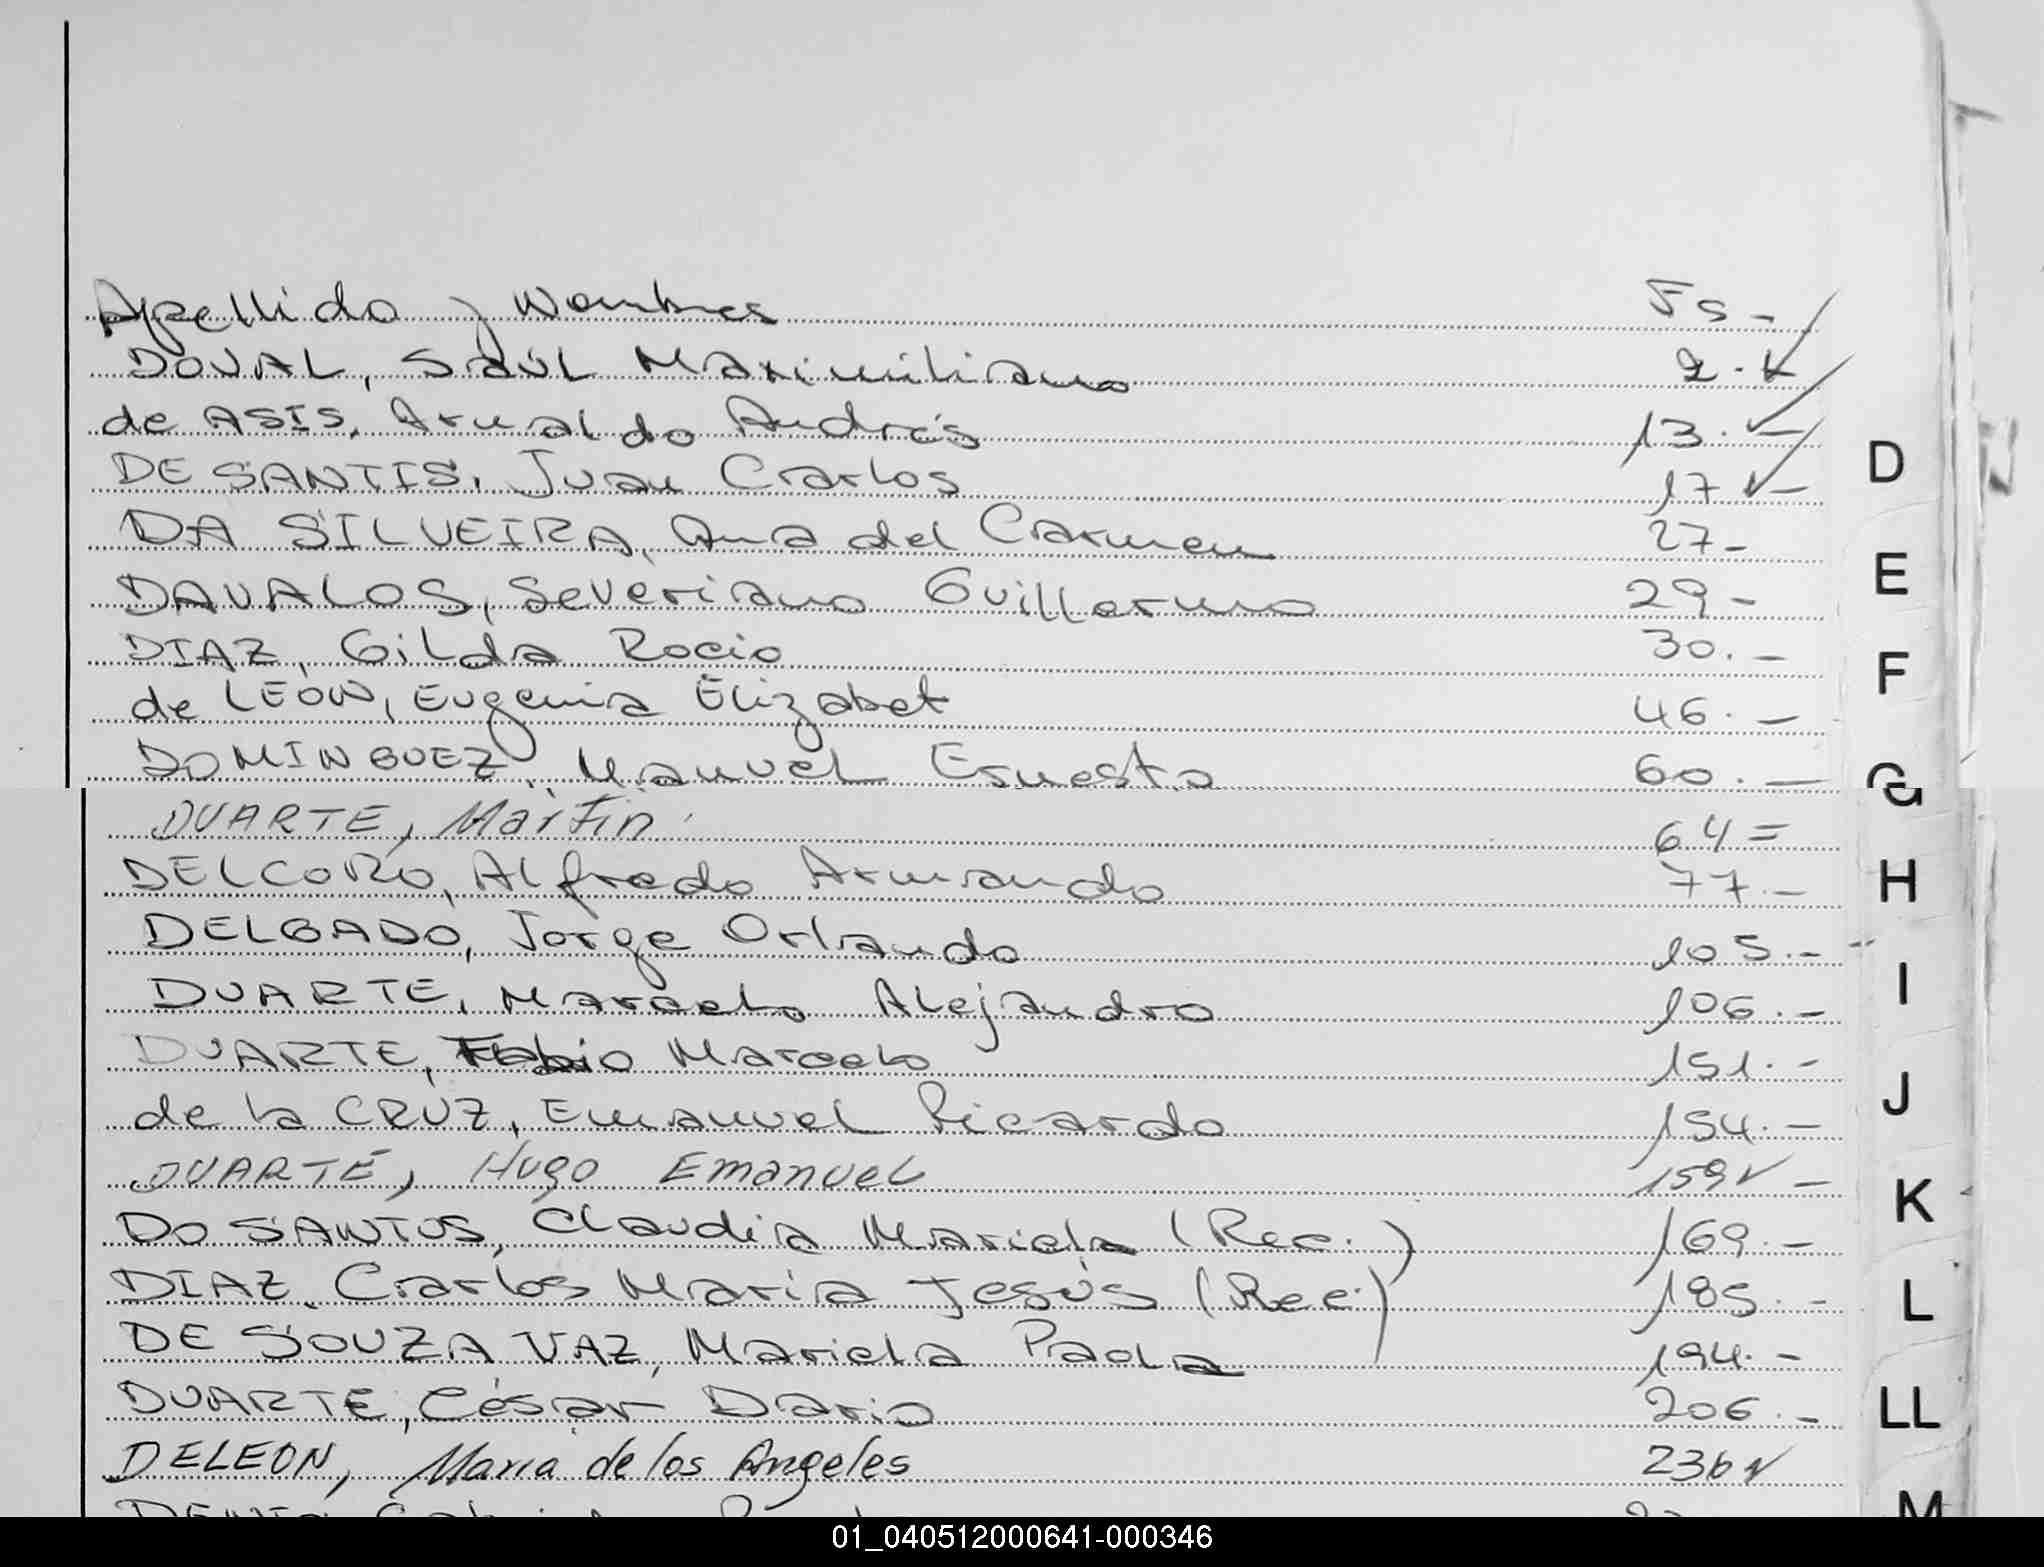 Apellido y Nombres Fs -
DOVAL, SAÚL Maximiliano 2.-
de ASIS, Arnaldo Andrés 13.-
DE SANTIS, Juan Carlos 17 -
DA SILVEIRA, Ana del Carmen 27-
DAVALOS, Severiano Guillermo 29-
DIAZ, Gilda Rocio 30.-
de LEÓN, Eugenia Elizabet 46.-
DOMINGUEZ, Manuel Ernesto 60.-
DUARTE, Martín 64=
DELCORO, Alfredo Armando 77.-
DELGADO, Jorge Orlando 105.-
DUARTE, Marcelo Alejandro 106.-
DUARTE, Fabio Marcelo 151.-
de la CRUZ, Emanuel Ricardo 154.-
DUARTE, Hugo Emanuel 159v -
DO SANTOS, Claudia Mariela (Rec.) 169.-
DIAZ, Carlos María Jesús (Rec.) 185.-
DE SOUZA VAZ, Mariela Paola 194.-
DUARTE, César Dario 206.-
DELEON, Maria de los Angeles 236v
D
E
F
G
H
I
J
K
L
LL
M
01_040512000641-000346